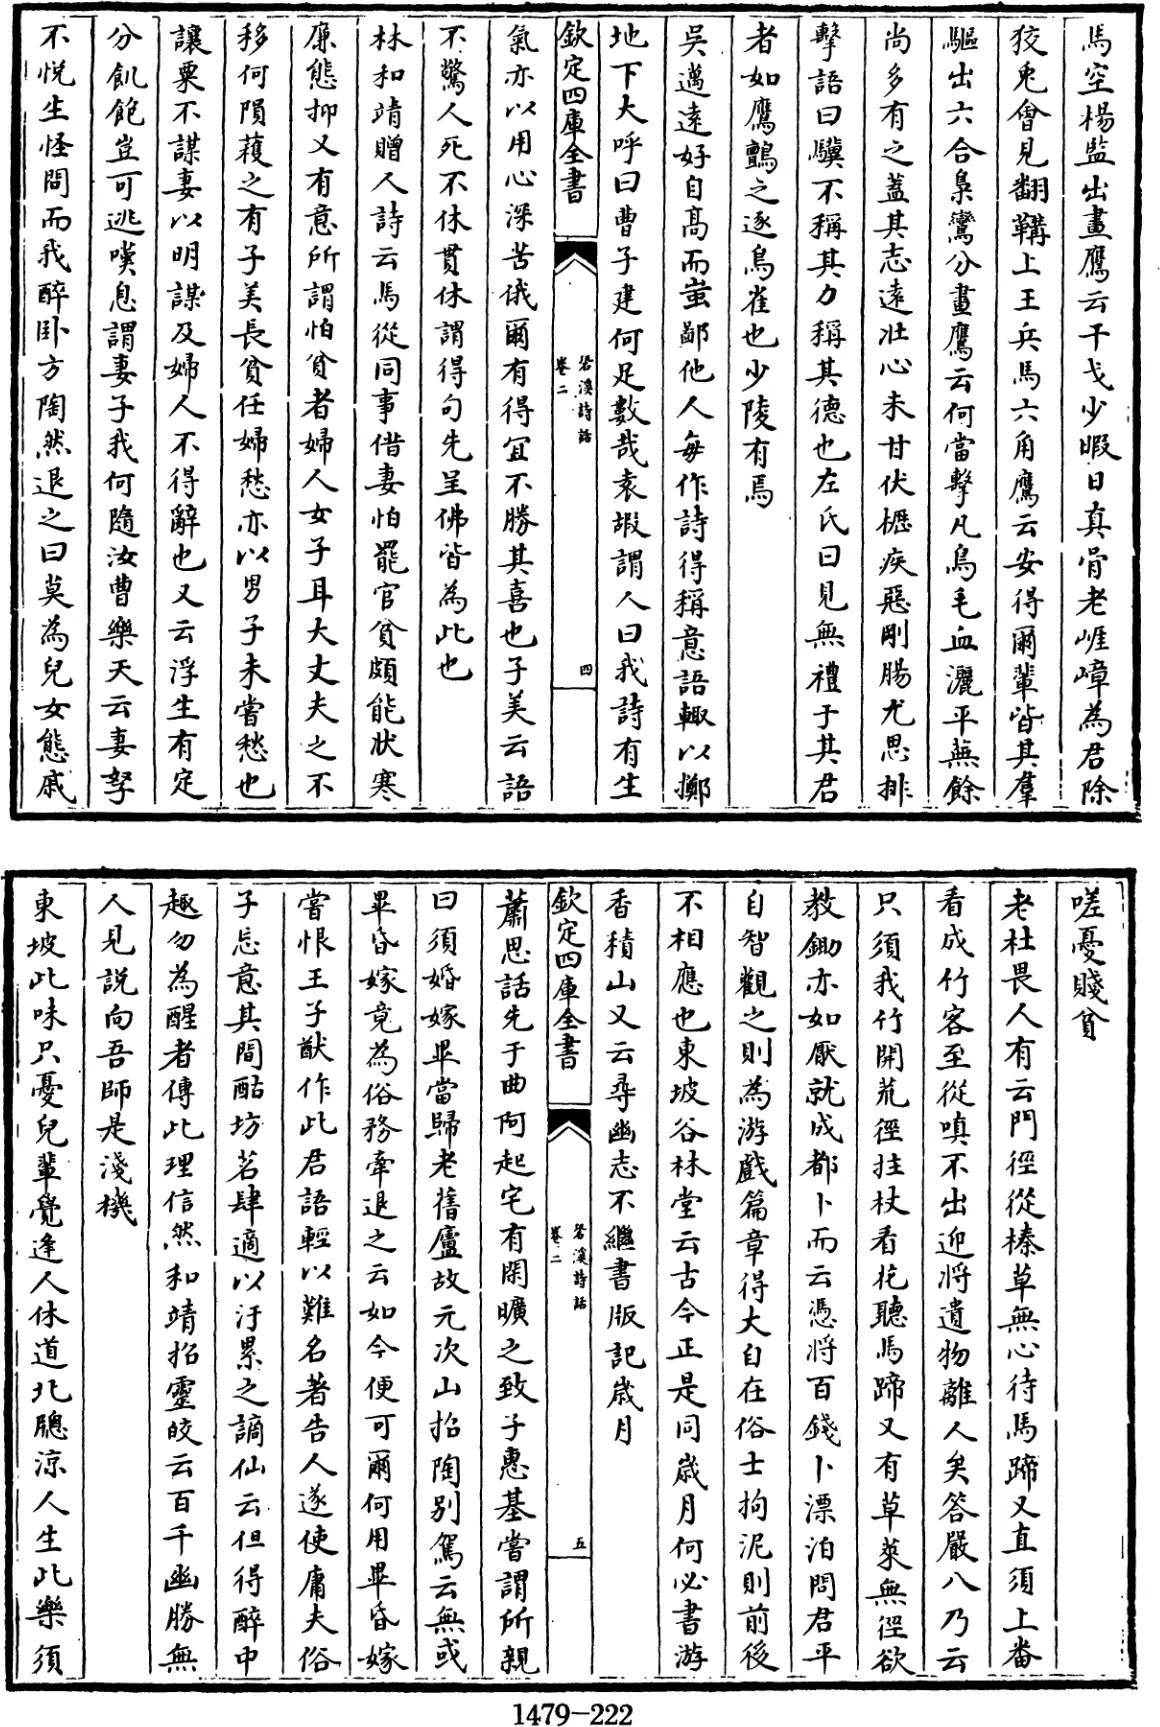 馬空楊監出畫鷹云干戈少暇日真骨老崕嶂為君除
狡兎㑹見翻鞲上王兵馬六角鷹云安得爾輩皆其羣
驅出六合梟鸞分畫鷹云何當擊凡鳥毛血灑平蕪餘
尚多有之蓋其志逺壯心未甘伏櫪疾惡剛腸尤思排
擊語曰驥不稱其力稱其德也左氏曰見無禮于其君
者如鷹鸇之逐鳥雀也少陵有焉
吳邁逺好自髙而蚩鄙他人每作詩得稱意語輙以擲
地下大呼曰曹子建何足數哉袁嘏謂人曰我詩有生
欽定四庫全書
䂬溪詩話
卷二
四
氣亦以用心深苦俄爾有得宜不勝其喜也子美云語
不驚人死不休貫休謂得句先呈佛皆為此也
林和靖贈人詩云馬從同事借妻怕罷官貧頗能狀寒
廉態抑又有意所謂怕貧者婦人女子耳大丈夫之不
移何隕穫之有子美長貧任婦愁亦以男子未嘗愁也
讓粟不謀妻以明謀及婦人不得辭也又云浮生有定
分飢飽豈可逃嘆息謂妻子我何隨汝曹樂天云妻孥
不悦生怪問而我醉卧方陶然退之曰莫為兒女態戚
嗟憂賤貧
老杜畏人有云門徑從榛草無心待馬蹄又直須上番
看成竹客至從嗔不出迎將遺物離人矣答嚴八乃云
只須我竹開荒徑拄杖看花聽馬蹄又有草萊無徑欲
教鋤亦如厭就成都卜而云憑將百錢卜漂泊問君平
自智觀之則為游戲篇章得大自在俗士拘泥則前後
不相應也東坡谷林堂云古今正是同嵗月何必書游
香積山又云尋幽志不繼書版記嵗月
欽定四庫全書
䂬溪詩話
卷二
五
蕭思話先于曲阿起宅有閑曠之致子惠基嘗謂所親
曰須婚嫁畢當歸老舊廬故元次山招陶别駕云無或
畢昏嫁竟為俗務牽退之云如今便可爾何用畢昏嫁
嘗恨王子猷作此君語輕以難名著告人遂使庸夫俗
子忘意其間酤坊茗肆適以汙累之謫仙云但得醉中
趣勿為醒者傳此理信然和靖招靈皎云百千幽勝無
人見説向吾師是淺機
東坡此味只憂兒輩覺逢人休道北牕涼人生此樂須
1479-222